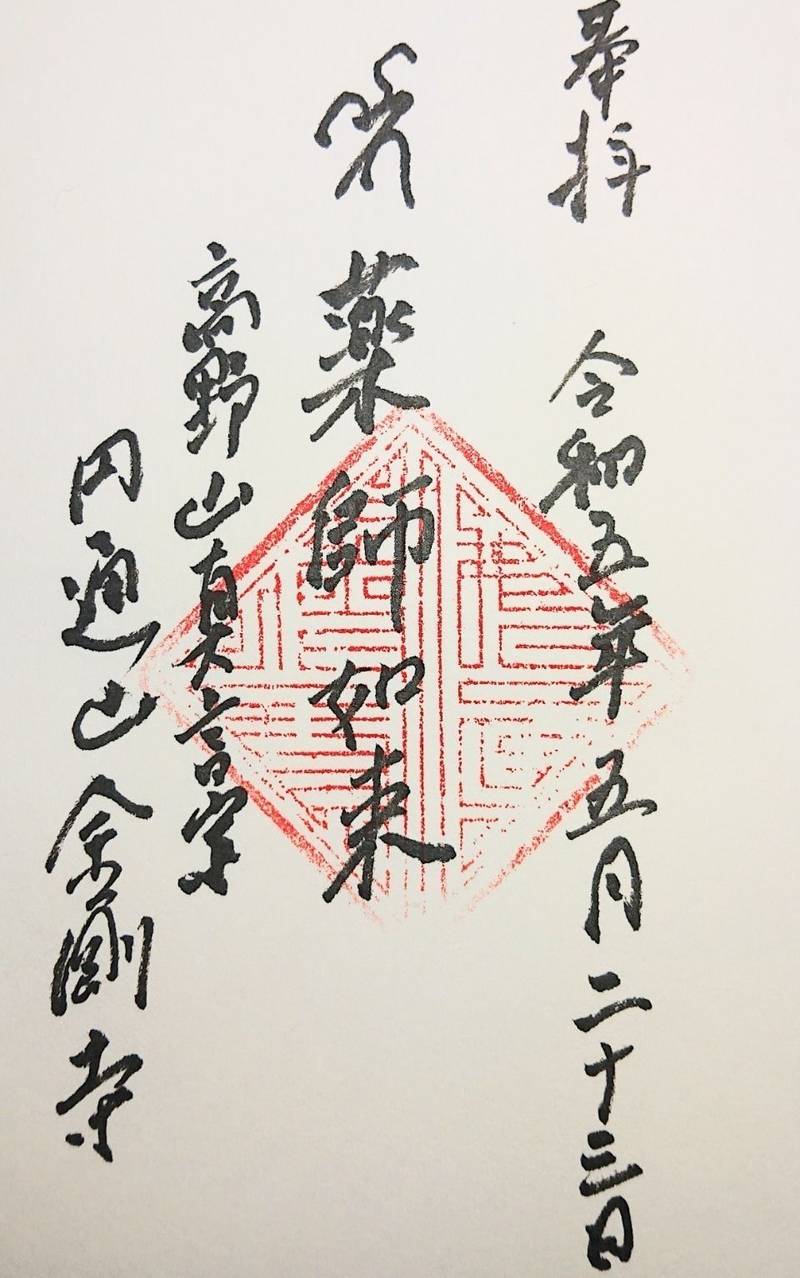 奉拝
令和五年五月二十三日
薬師如来
高野山真言宗
円通山金剛寺